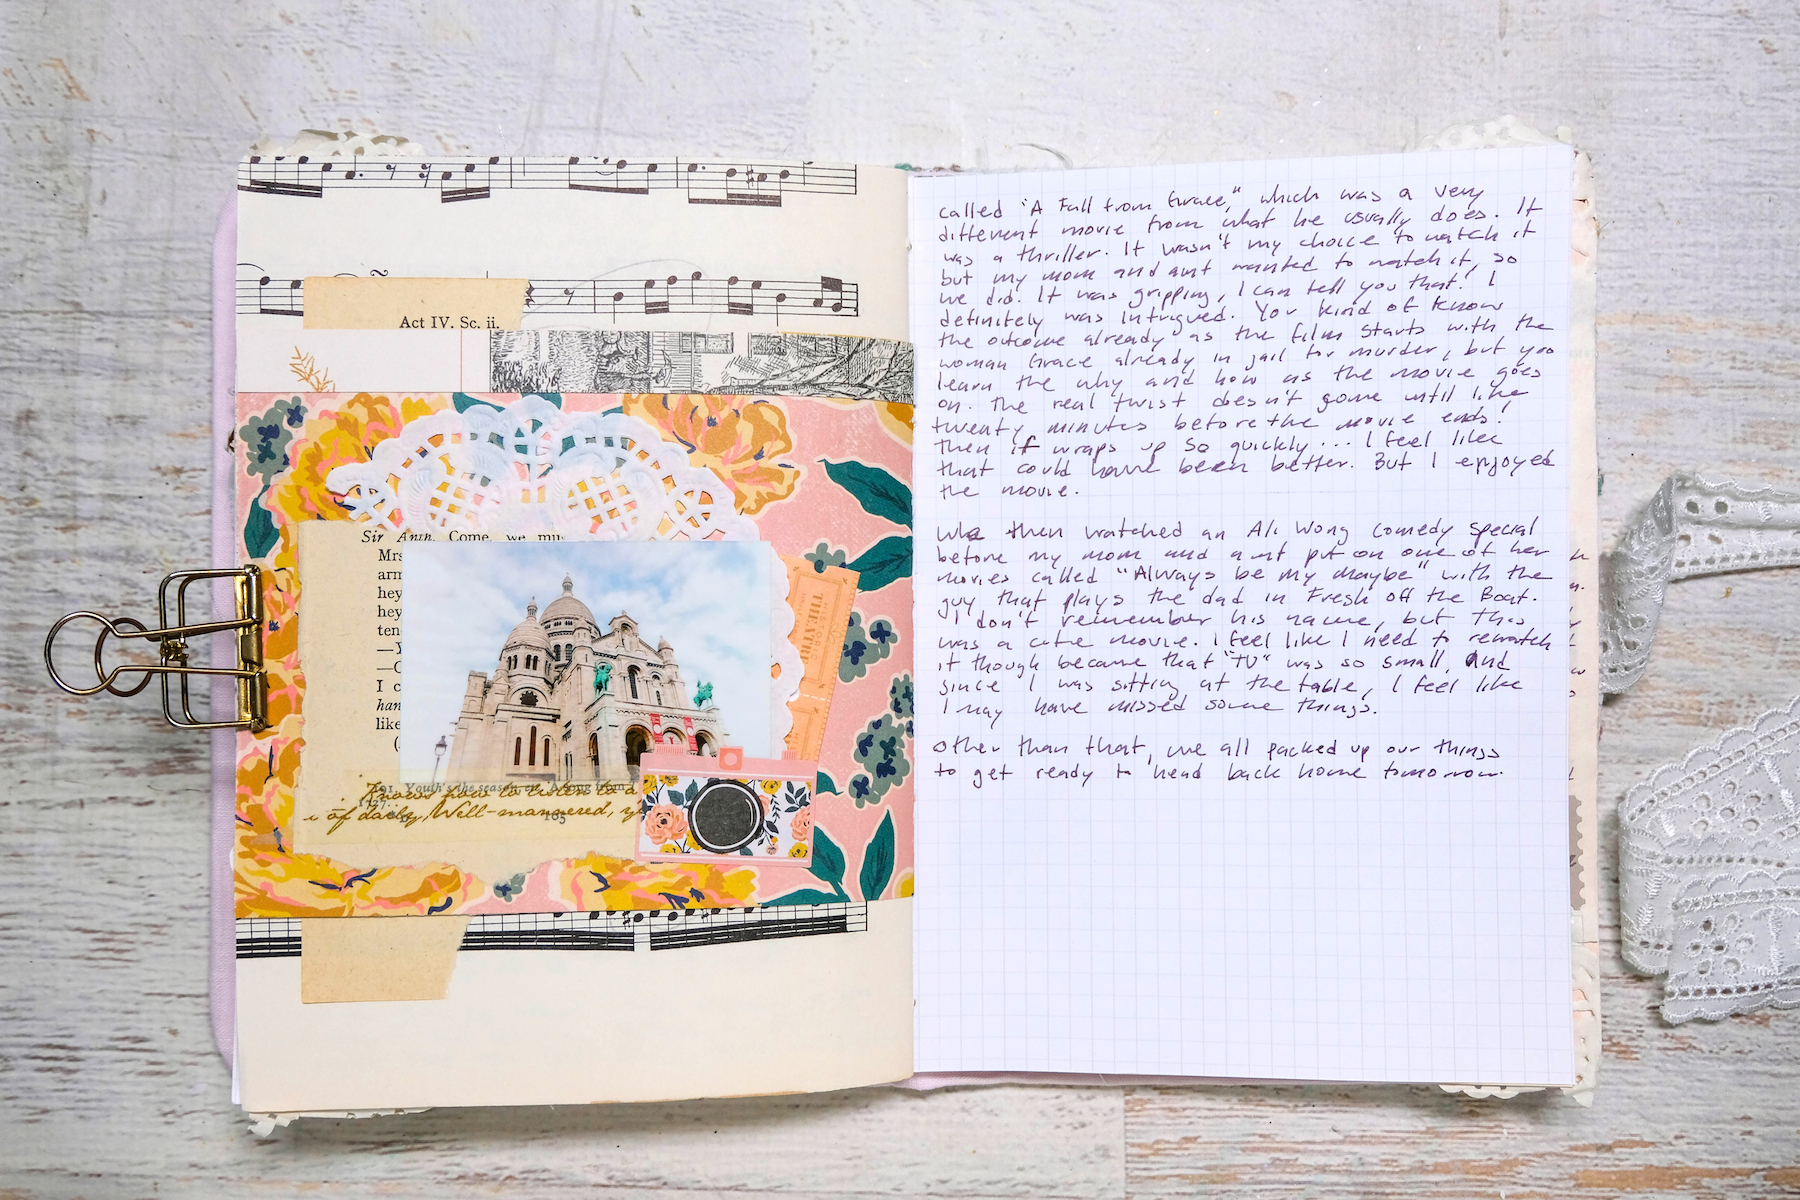 Act IV. Sc. ii.
Sir Anth. Come, we mu
Mrs
arm
hey
hey
ten
—Y
—C
I c
han
like
(
THEATRE
Youth's the season
knows how to listen to a
of daily, Well-mannered, y
165
called "A Fall from Grace," which was a very
different movie from what he usually does. It
was a thriller. It wasn't my choice to watch it
but my mom and aunt wanted to watch it, so
we did. It was gripping, I can tell you that! I
definitely was intrigued. You kind of know
the outcome already as the film starts with the
woman Grace already in jail for murder, but you
learn the why and how as the movie goes
on. The real twist doesn't come until like
twenty minutes before the movie ends!
Then it wraps up so quickly... I feel like
that could have been better. But I enjoyed
the movie.
We then watched an Ali Wong comedy special
before my mom and aunt put on one of her
movies called "Always be my maybe" with the
guy that plays the dad in Fresh off the Boat.
I don't remember his name, but this
was a cute movie. I feel like I need to rewatch
it though because that "TV" was so small, and
since I was sitting at the table, I feel like
I may have missed some things.
Other than that, we all packed up our things
to get ready to head back home tomorrow.